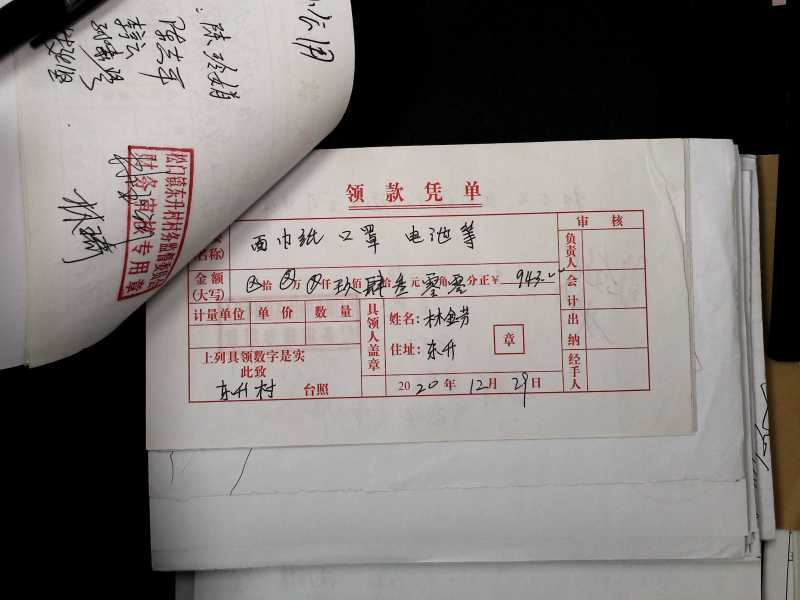 公用
陈玲娟
陈志平
李云
松门镇东升村村务监督委员会
财务审核专用章
领款凭单
名称) 面巾纸 口罩 电池等
审核
负责人
金额(大写) ⊗拾⊗万⊗仟玖佰肆拾叁元零角零分正¥ 943.00
会计
计量单位 单价 数量
具领人盖章
姓名:林金芳
住址:东升
章
出纳
上列具领数字是实
此致
东升村 台照
2020年12月29日
经手人